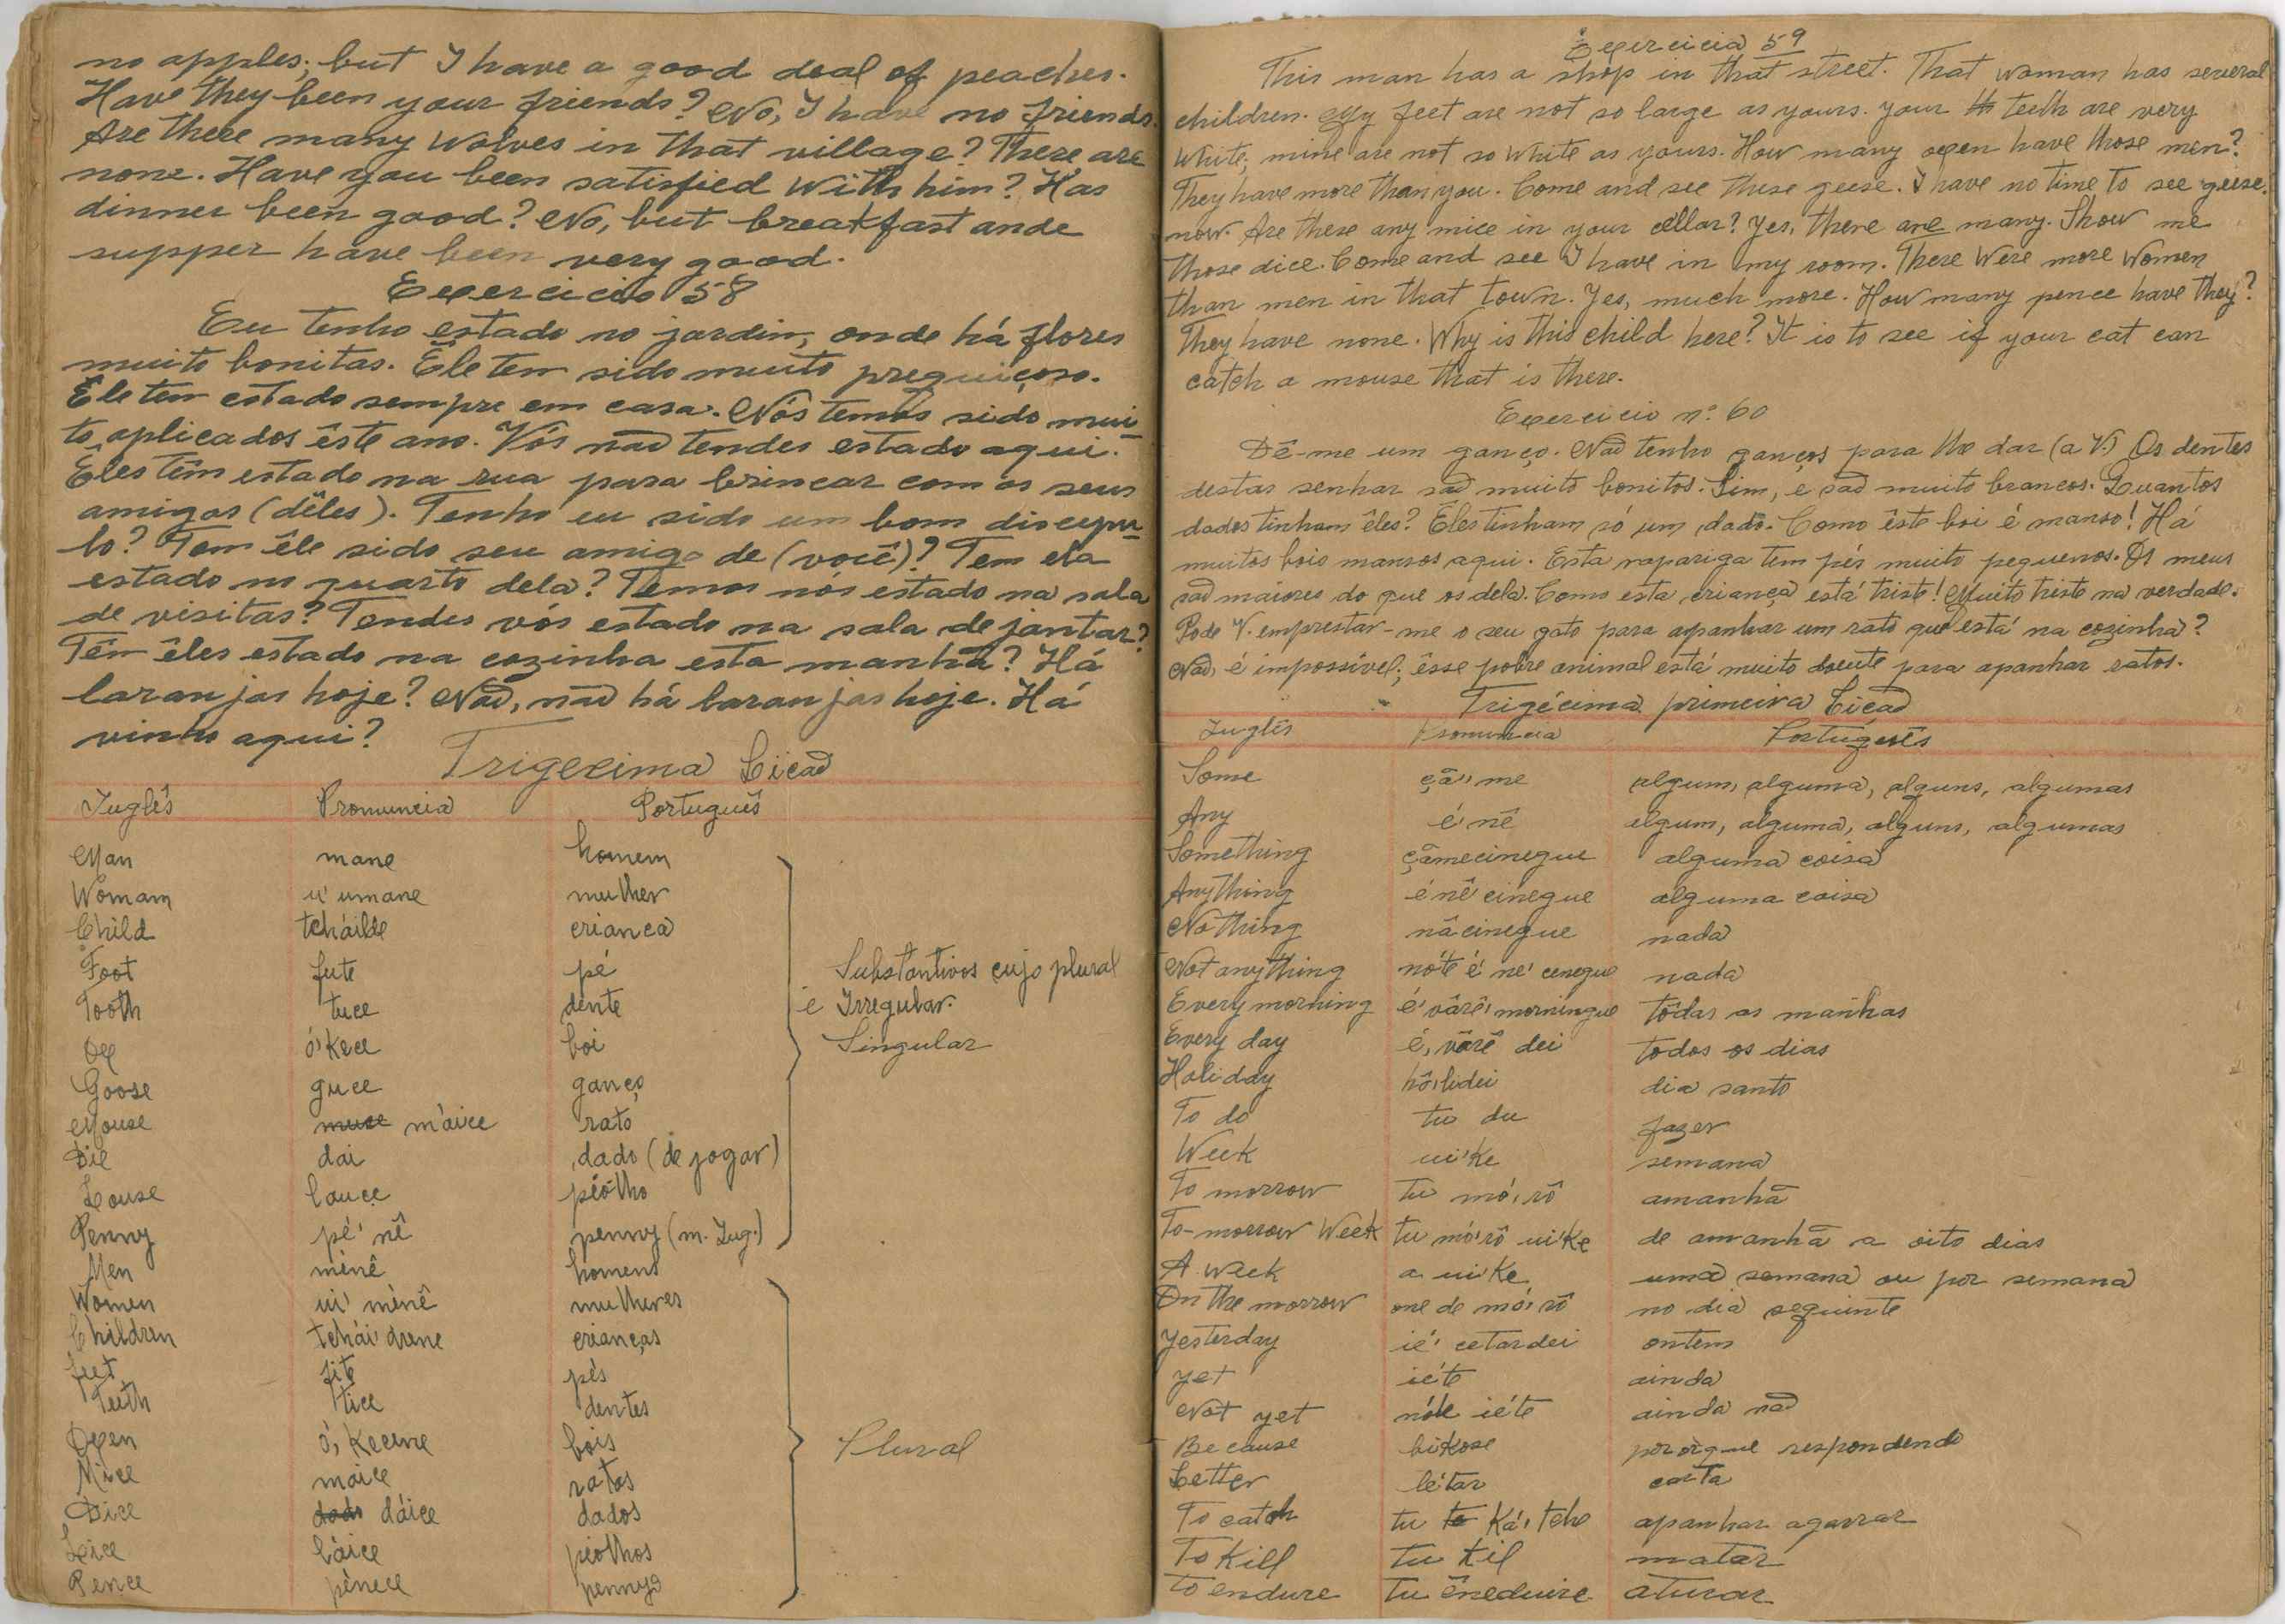 no apples; but I have a good deal of peaches.
Have they been your friends? No, I have no friends.
Are there many wolves in that village? There are
none. Have you been satisfied with him? Has
dinner been good? No, but breakfast ande
supper have been very good.
Exercicio 58
Eu tenho estado no jardim, onde há flores
muito bonitas. Êle tem sido muito preguiçoso.
Êle tem estado sempre em casa. Nós temos sido mui-
to aplicados êste ano. Vós não tendes estado aqui.
Êles têm estado na rua para brincar com os seus
amigos (dêles). Tenho eu sido um bom discipu-
lo? Tem êle sido seu amigo de (você)? Tem ela
estado no quarto dela? Temos nós estado na sala
de visitas? Tendes vós estado na sala de jantar?
Têm êles estado na cozinha esta manhã? Há
laranjas hoje? Não, não há laranjas hoje. Há
vinho aqui?
Trigecima Lição
Inglês Pronuncia Português
Man mane homem
Womam u'umane mulher
Child tcháilde crianca
Foot fute pé
Substantivos cujo plural
Tooth tuce dente
é Irregular.
Ox ó'kece boi
Singular
Goose guce ganço
Mouse muse m'aice rato
Die dai dado (de jogar)
Louse lauçe piôlho
Penny pé'nê penny (m. Ing.)
Men ménê homens
Women ui'ménê mulheres
Children tchái'drene crianças
feet fite pés
Teeth tice dentes
Oxen ó, kecene bois
Plural
Mice maice ratos
Dice dado dáice dados
Lice láice piolhos
Pence pênece pennys
Exercicio 59
This man has a shop in that street. That woman has several
children. My feet are not so large as yours. your th teeth are very
White; mine are not so white as yours. How many oxen have those men?
They have more than you. Come and see these geese. I have no time to see geese.
now. Are there any mice in your cellar? Yes, there are many. Show me
those dice. Come and see I have in my room. There were more women
than men in that town. Yes, much more. How many pence have they?
They have none. Why is this child here? It is to see if your cat can
catch a mouse that is there.
Exercicio nº 60
Dê-me um ganço. Não tenho ganços para lhe dar (a V.) Os dentes
destas senhar são muito bonitos. Sim, e são muito brancos. Quantos
dados tinham êles? Êles tinham só um dado. Como êste boi é manso! Há
muitos bois mansos aqui. Esta rapariga tem pés muito pequenos. Os meus
são maiores do que os dela. Como esta criança está triste! Muito triste na verdade.
Pode V. emprestar-me o seu gato para apanhar um rato que está na cozinha?
Não, é impossível; êsse pobre animal está muito doente para apanhar ratos.
Trigécima primeira Lição
Inglês Pronuncia Português
Some çâ'me algum, alguma, alguns, algumas
Any é'nê algum, alguma, alguns, algumas
Something çâmecinegue alguma coisa
Anything é'nê cinegue alguma coisa
Nothing nâcinegue nada
Not anything nóte é'né cenegue nada
Every morning é'vârê morningue tôdas as manhas
Every day é, vârê dei todos os dias
Holiday hó,lidei dia santo
To do tu du fazer
Week ui'ke semana
To morrow tu mó,rô amanhã
To-morrow Week tu mó'rô ui'ke de amanhã a oito dias
A week a ui'ke uma semana ou por semana
On the morrow one de mó,rô no dia seguinte
Yesterday ié'cetardei ontem
yet iéte ainda
Not yet nóte iéte ainda não
Because bikose porque respondendo
Letter létar carta
To catch tu te ká,tche apanhar agarrar
To Kill tu kil matar
To endure tu êneduire aturar